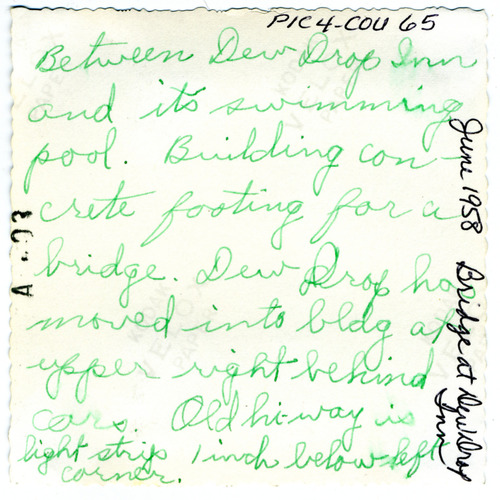 PIC4-COU 65
Between Dew Drop Inn
and its swimming
pool. Building con-
crete footing for a
bridge. Dew Drop has
moved into bldg at
upper right behind
cars. Old hi-way is
light strip 1 inch below left
corner.
June 1958 Bridge at Dew Drop
Inn